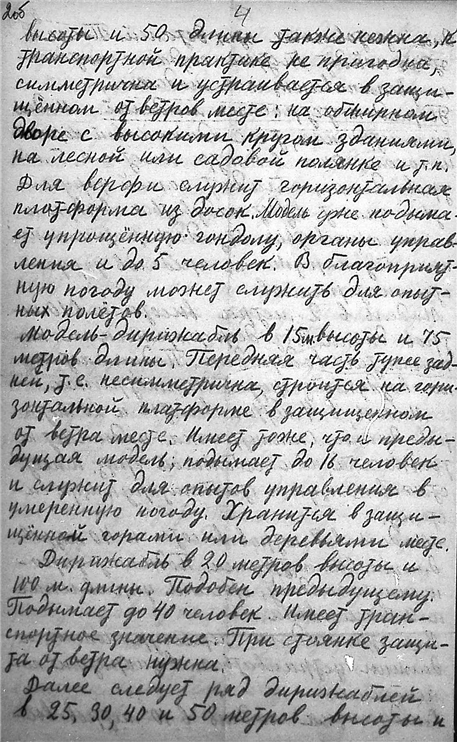 2об
4
высоты и 50 длины также нежна, к
транспортной практике не пригодна,
симметрична и устраивается в защи-
щённом от ветров месте: на обширном
дворе с высокими кругом зданиями,
на лесной или садовой полянке и т.п.
Для верфи служит горизонтальная
платформа из досок. Модель уже подыма-
ет упрощённую гондолу, органы управ-
ления и до 5 человек. В благоприят-
ную погоду может служить для опыт-
ных полётов.
Модель-дирижабль в 15м высоты и 75
метров длины. Передняя часть тупее зад-
ней, т.е. несимметрична, строится на гори-
зонтальной платформе в защищенном
от ветра месте. Имеет тоже, что и преды-
дущая модель; подымает до 16 человек
и служит для опытов управления в
умеренную погоду. Хранится в защи-
щённом горами или деревьями месте.
Дирижабль в 20 метров высоты и
100 м. длины. Подобен предыдущему.
Подымает до 40 человек. Имеет тран-
спортное значение. При стоянке защи-
та от ветра нужна.
Далее следует ряд дирижаблей
в 25, 30, 40 и 50 метров высоты и